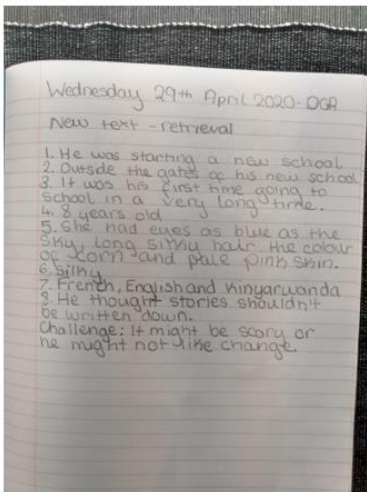 Wednesday 29th April 2020 - DGR
New text - retrieval
1. He was starting a new school
2. Outside the gates of his new school
3. It was his first time going to
school in a very long time.
4. 8 years old
5. She had eyes as blue as the
sky, long silky hair the colour
of corn and pale pink skin.
6. Silky
7. French, English and Kinyarwanda
8. He thought stories shouldn't
be written down.
Challenge: It might be scary or
he might not like change.